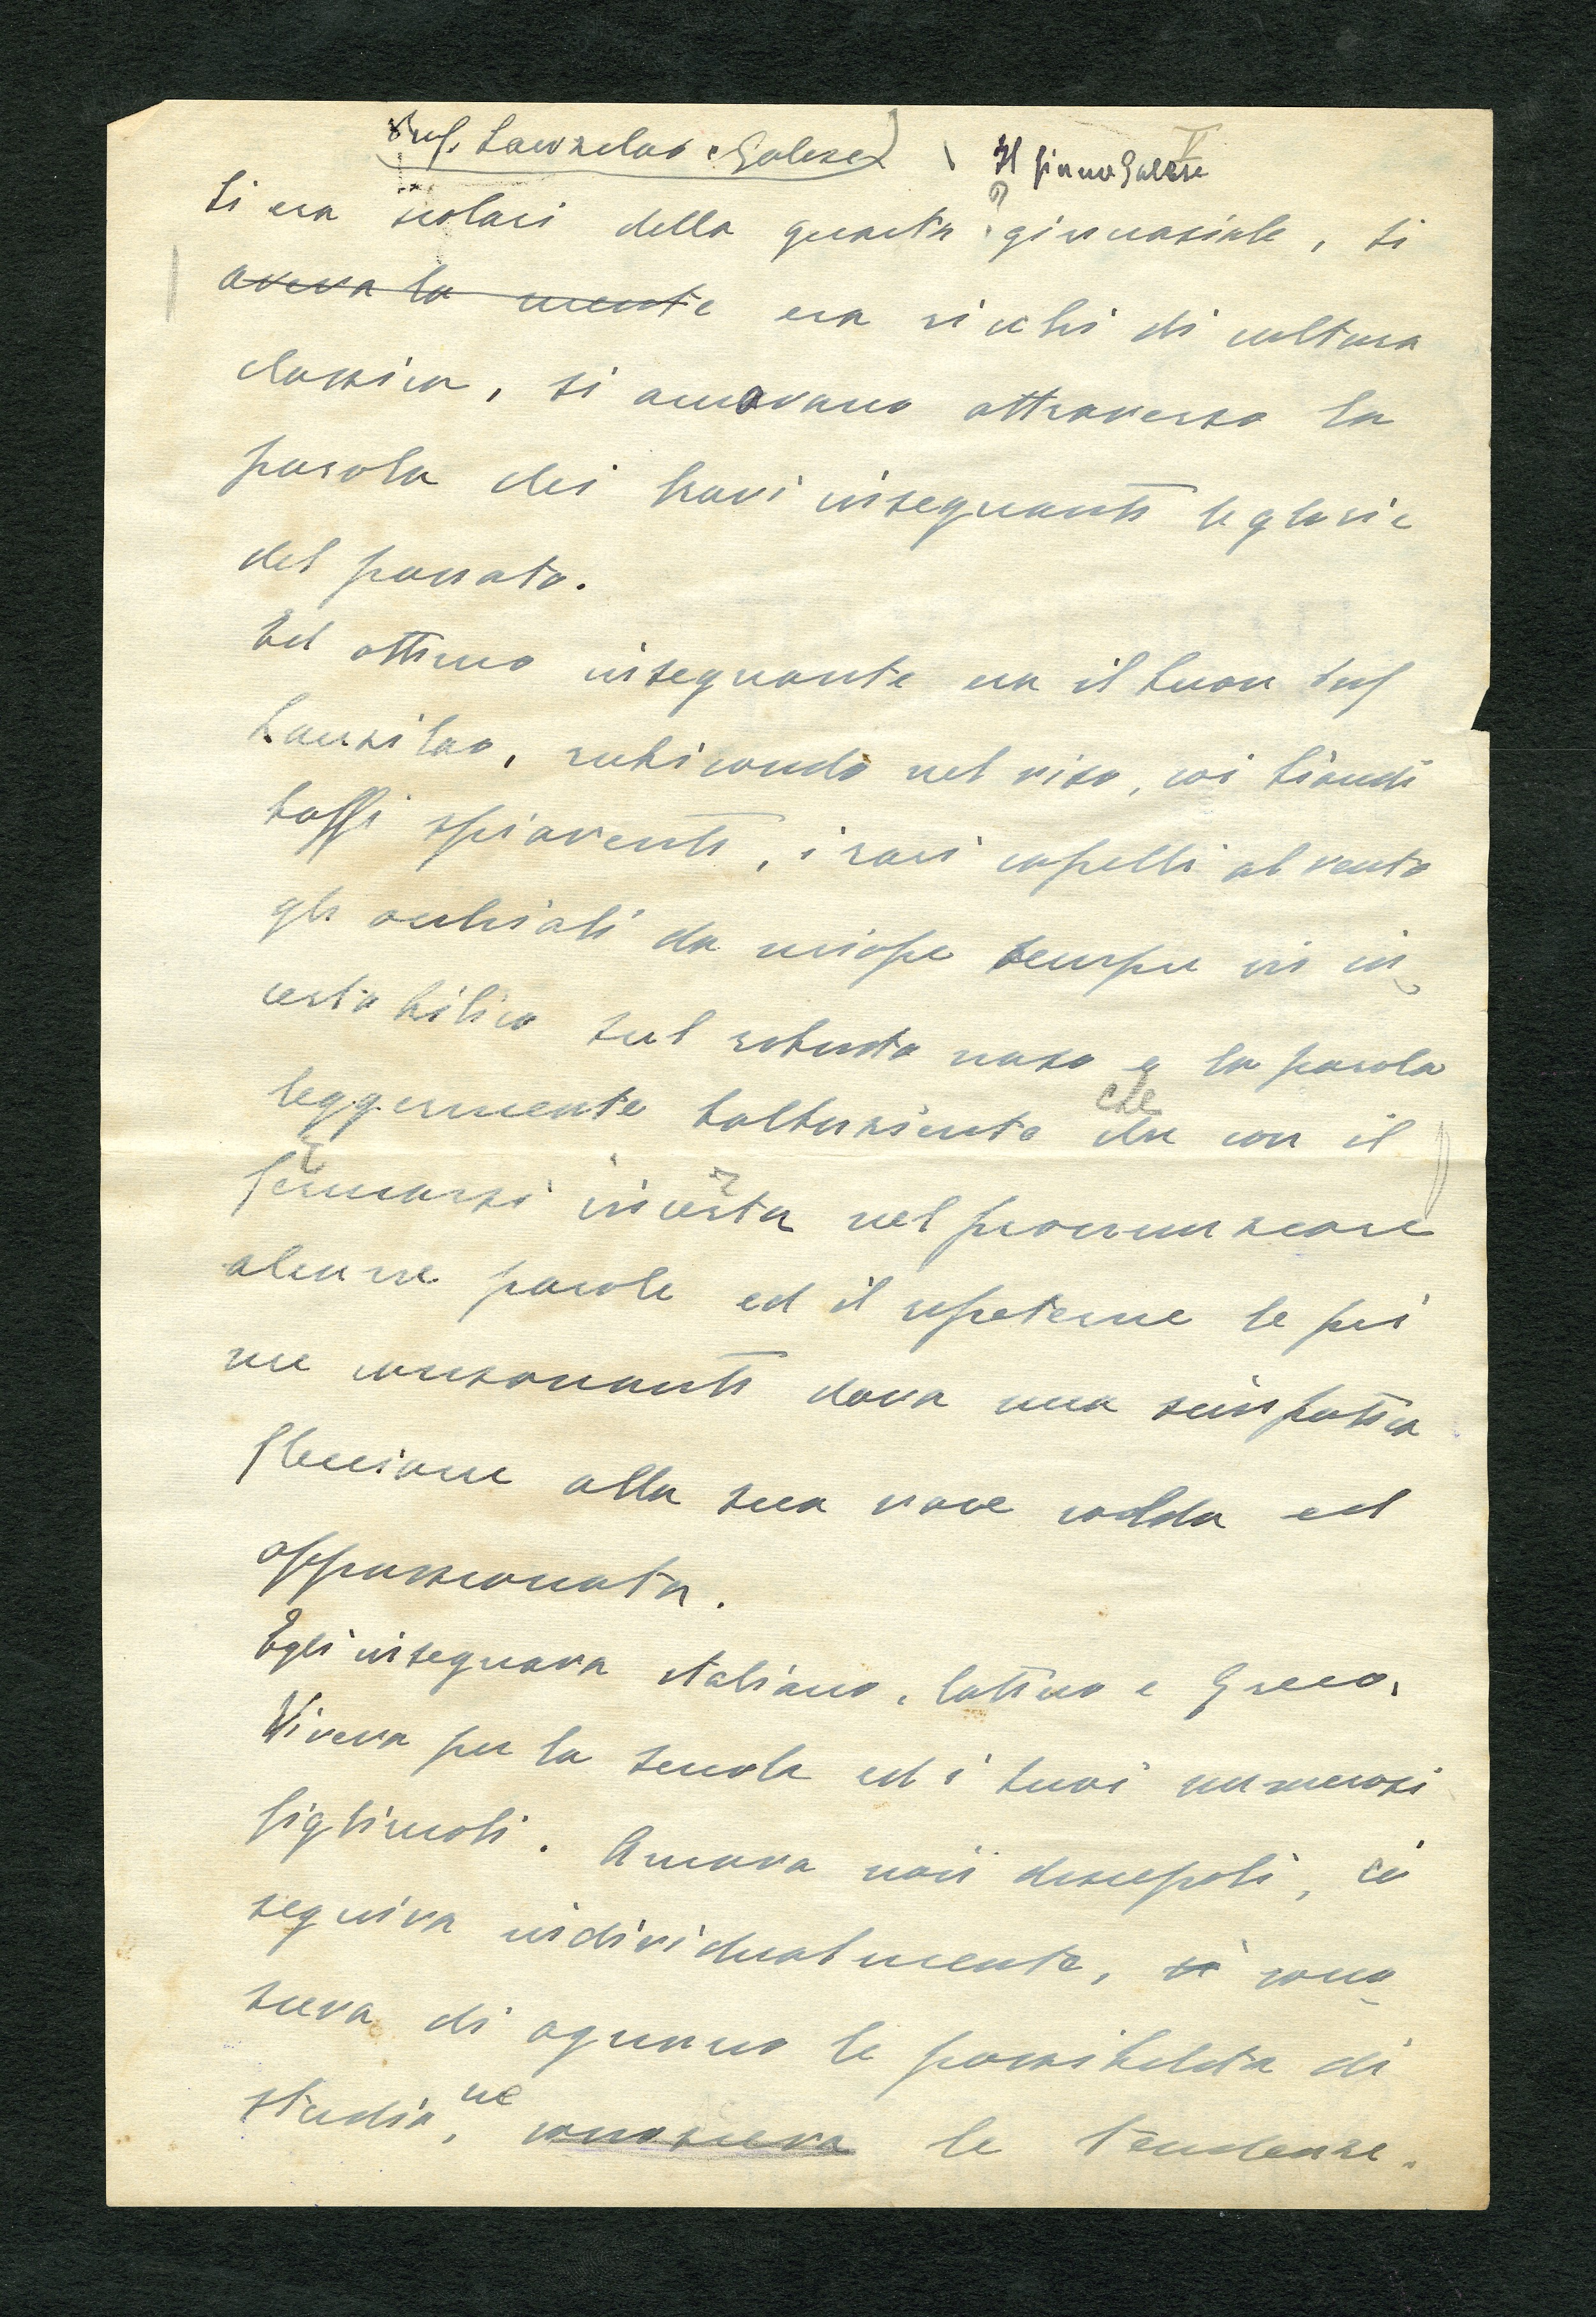 Prof. Lanzilao e Galese
Il fiume Galese
Si era scolari della quarta ginnasiale, si
aveva la mente era ricchi di cultura
classica, si amavano attraverso la
parola dei bravi insegnanti le glorie
del passato.
Ed ottimo insegnante era il buon Prof
Lanzilao, rubicondo nel viso, coi biondi
baffi spioventi, i rari capelli al vento
gli occhiali da miope sempre in in
certo bilico sul robusto naso e la parola
leggermente balbuziente che con il
fermarsi incerta nel pronunziare
alcune parole ed il ripeterne le pri
me consonanti dava una simpatica
flessione alla sua voce calda ed
appassionata.
Egli insegnava italiano, latino e Greco.
Viveva per la scuola ed i suoi numerosi
figliuoli. Amava noi discepoli, ci
seguiva individualmente, cono
sceva di ognuno le possibilità di
studio, ne conosceva le tendenze.